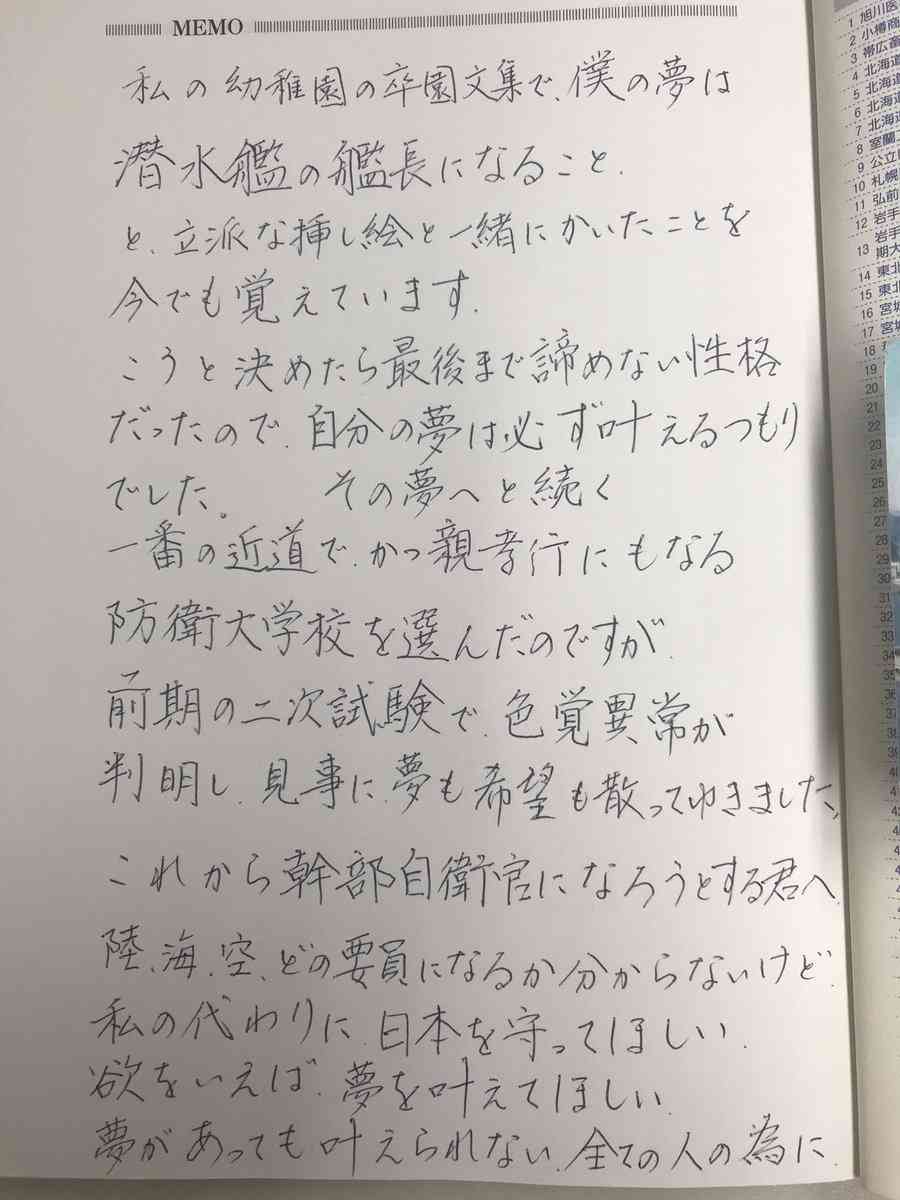 MEMO
私の幼稚園の卒園文集で、僕の夢は
潜水艦の艦長になること、
と、立派な挿し絵と一緒にかいたことを
今でも覚えています。
こうと決めたら最後まで諦めない性格
だったので、自分の夢は必ず叶えるつもり
でした。 その夢へと続く
一番の近道で、かつ親孝行にもなる
防衛大学校を選んだのですが、
前期の二次試験で、色覚異常が
判明し、見事に、夢も希望も散ってゆきました。
これから幹部自衛官になろうとする君へ、
陸、海、空、どの要員になるか分からないけど、
私の代わりに、日本を守ってほしい、
欲をいえば、夢を叶えてほしい、
夢があっても叶えられない、全ての人の為に
1 旭川医
2 小樽商
3 帯広畜
4 北海道
5 北海道
6 北海道
7 北海道
8 室蘭工
9 公立
10 札幌
11 弘前
12 岩手
13 岩手
期大
14 東北
15 東北
16 宮城
17 宮城
18
19
20
21
22
23
24
25
26
27
28
29
30
31
32
33
34
35
36
37
38
39